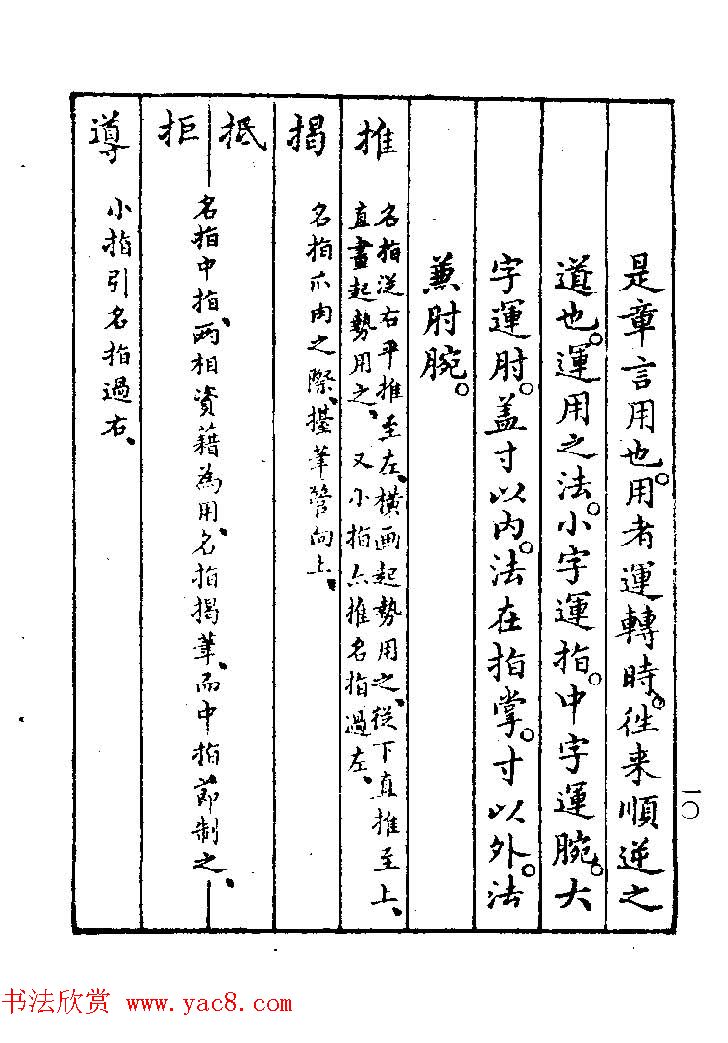 是章言用也。用者運轉時。往来順逆之
道也。運用之法。小字運指。中字運腕。大
字運肘。盖寸以内。法在指掌。寸以外。法
兼肘腕。
推
名指從右平推至左、橫画起勢用之、從下直推至上、
直畫起勢用之、又小指亦推名指過左、
揭
名指爪肉之際、擡筆管向上、
抵
拒
名指中指、兩相資藉為用、名指揭筆、而中指節制之、
導
小指引名指過右、
一〇
书法欣赏 www.yac8.com